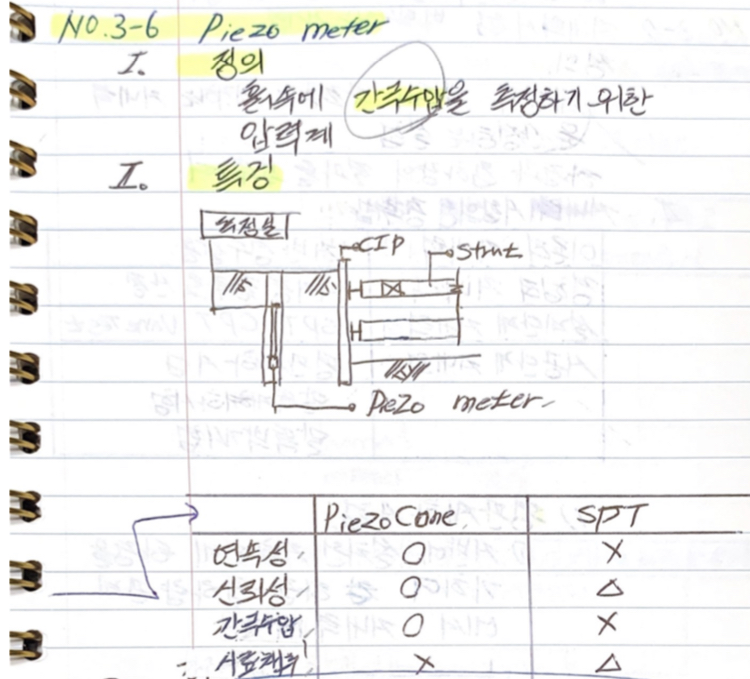 NO.3-6 Piezo meter
I. 정의
흙속에 간극수압을 측정하기 위한
압력계
II. 특징
CIP
Strut
Piezo meter
Piezo Cone SPT
연속성 O X
신뢰성 O △
간극수압 O X
시료채취 X △